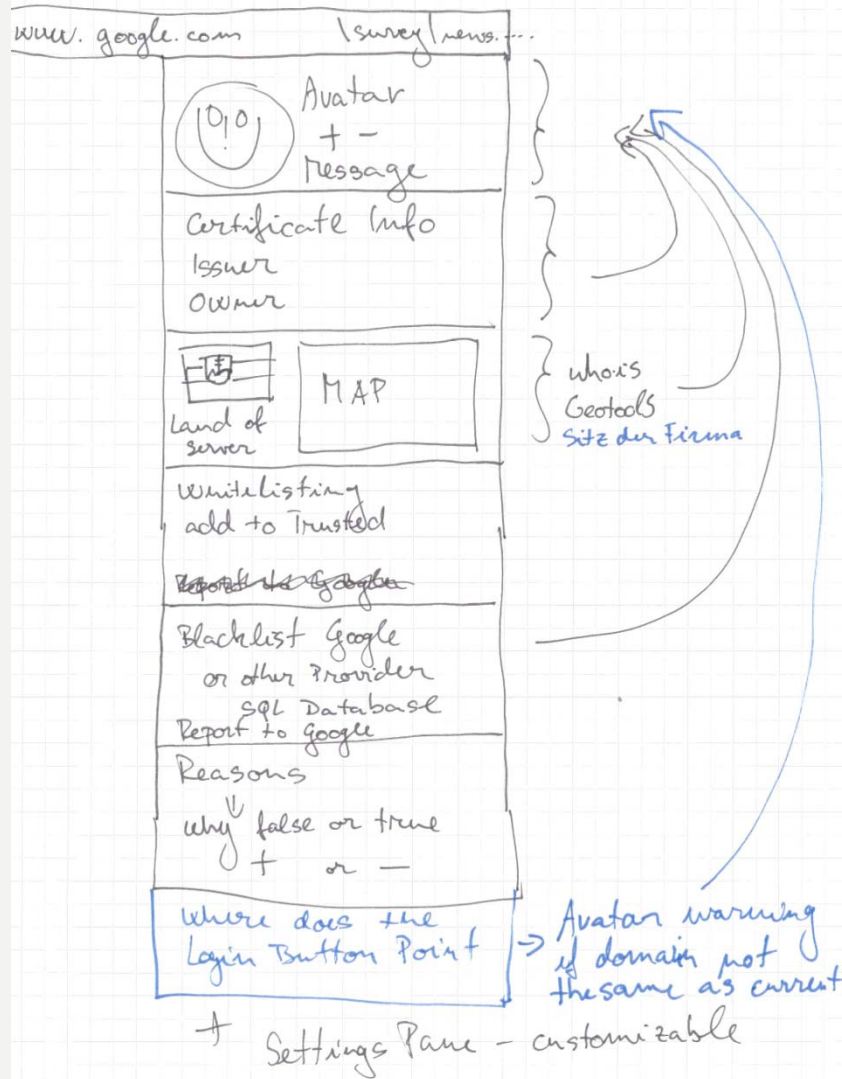 www.google.com \survey\news....
Avatar
+ -
Message
Certificate Info
Issuer
Owner
MAP
Land of
server
whois
Geotools
Sitz der Firma
Whitelisting
add to Trusted
Report to Google
Blacklist Google
or other Provider
SQL Database
Report to Google
Reasons
why false or true
+ or -
Where does the
Login Button Point
-> Avatar warning
if domain not
the same as current
+ Settings Pane - customizable